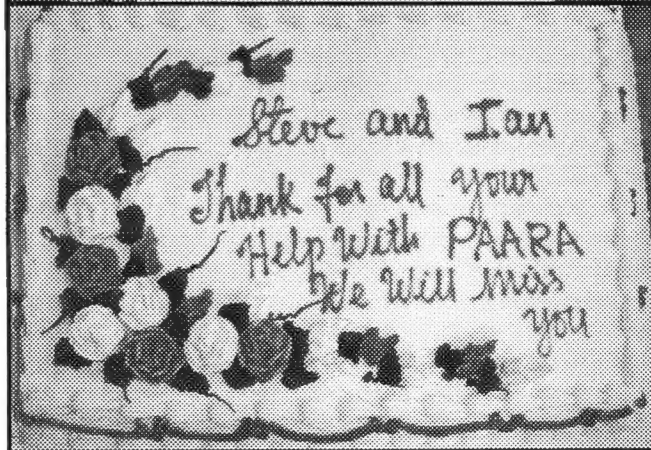 Steve and Ian
Thank for all your
Help With PAARA
We Will Miss
you